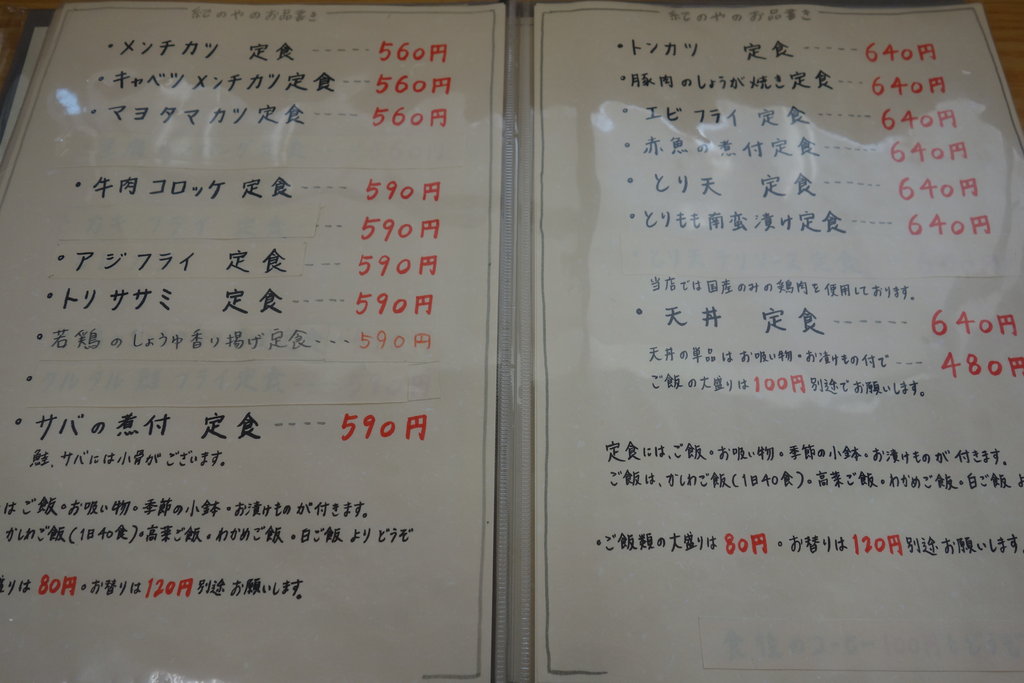 紀のやのお品書き
・メンチカツ 定食 ----- 560円
・キャベツメンチカツ定食 --- 560円
・マヨタマカツ定食 ---- 560円
・牛肉コロッケ 定食 ---- 590円
590円
・アジフライ 定食 --- 590円
・トリササミ 定食 ---- 590円
・若鶏のしょうゆ香り揚げ定食--- 590円
・サバの煮付 定食 ---- 590円
鮭、サバには小骨がございます。
はご飯・お吸い物・季節の小鉢・お漬けものが付きます。
かしわご飯(1日40食)・高菜ご飯・わかめご飯・白ご飯 より どうぞ
盛りは 80円・お替りは 120円 別途 お願いします。
紀のやのお品書き
・トンカツ 定食 ----- 640円
・豚肉のしょうが焼き定食 --- 640円
・エビフライ 定食 ---- 640円
・赤魚の煮付定食 ---- 640円
・とり天 定食 ---- 640円
・とりもも南蛮漬け定食 --- 640円
当店では国産のみの鶏肉を使用しております。
・天丼 定食 ------ 640円
天丼の単品はお吸い物・お漬けもの付で --- 480円
ご飯の大盛りは100円別途でお願いします。
定食には、ご飯・お吸い物・季節の小鉢・お漬けものが付きます。
ご飯は、かしわご飯(1日40食)・高菜ご飯・わかめご飯・白ご飯 よ
・ご飯類の大盛りは 80円・お替りは 120円別途お願いします。